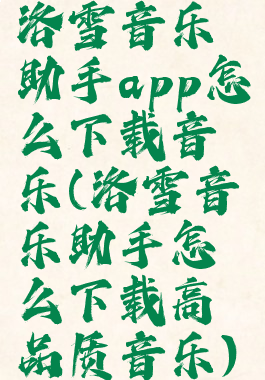 洛雪音乐
助手app怎
么下载音
乐(洛雪音
乐助手怎
么下载高
品质音乐)